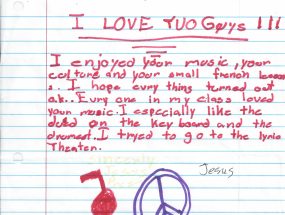 I LOVE YUO Guys !!!
I enjoyed your music, your
culture and your small french
. I hope evry thing turned out
o.k.. Evry one in my class loved
your music. I especially like the
dude on the key board and the
drumest. I tryed to go to the lyric
Theater.
Sincerely
Jesus